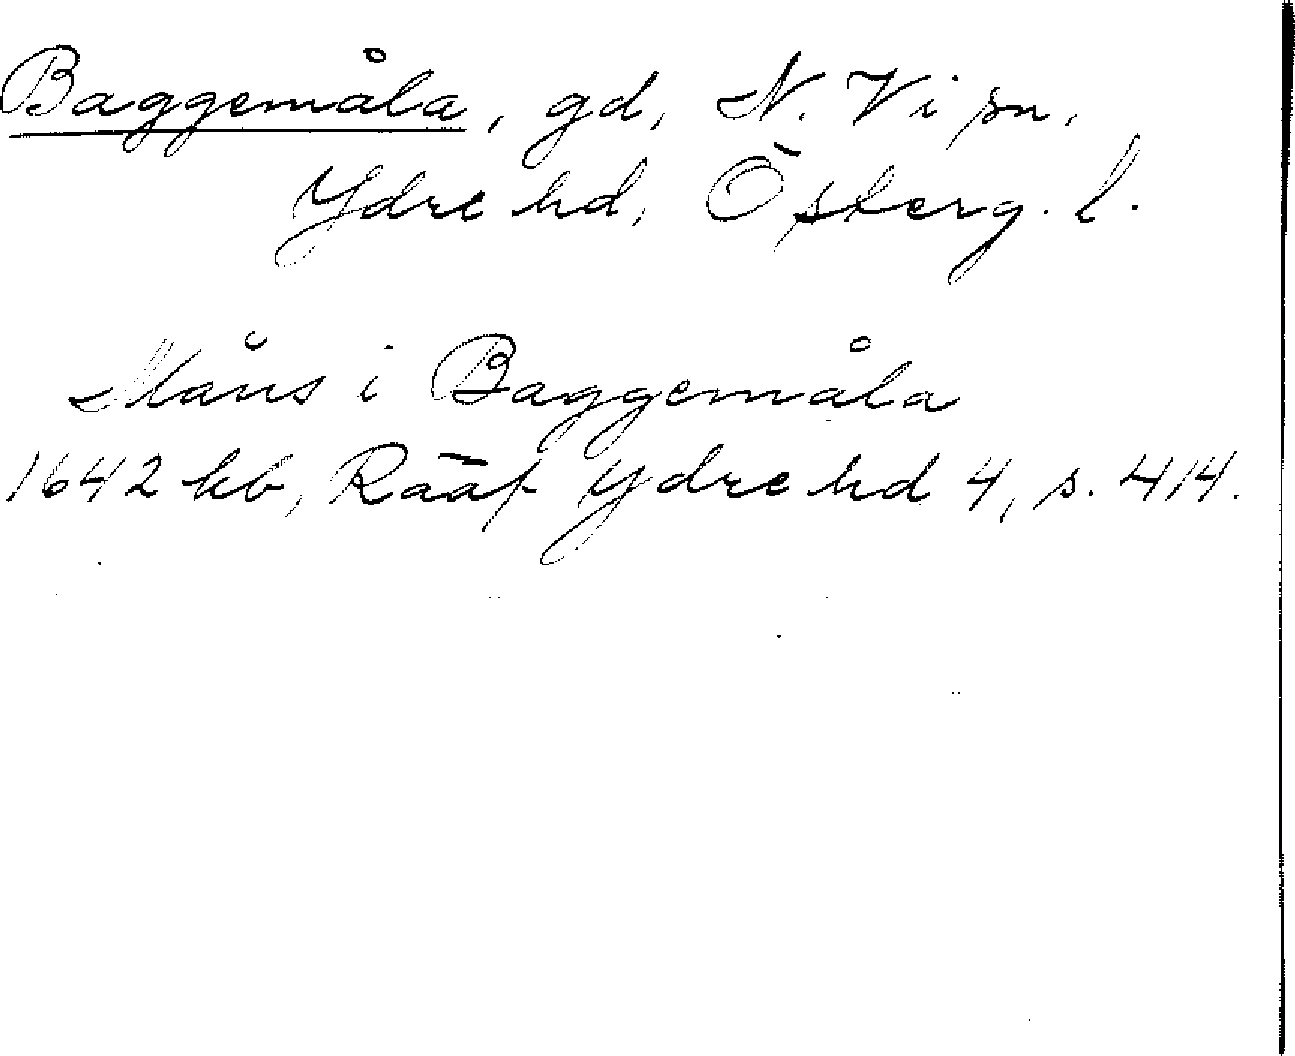 Baggemåla, gd, N. Vi sn,
Ydre hd, Österg. l.
Måns i Baggemåla
1642 kb, Rääf Ydre hd 4, s. 414.